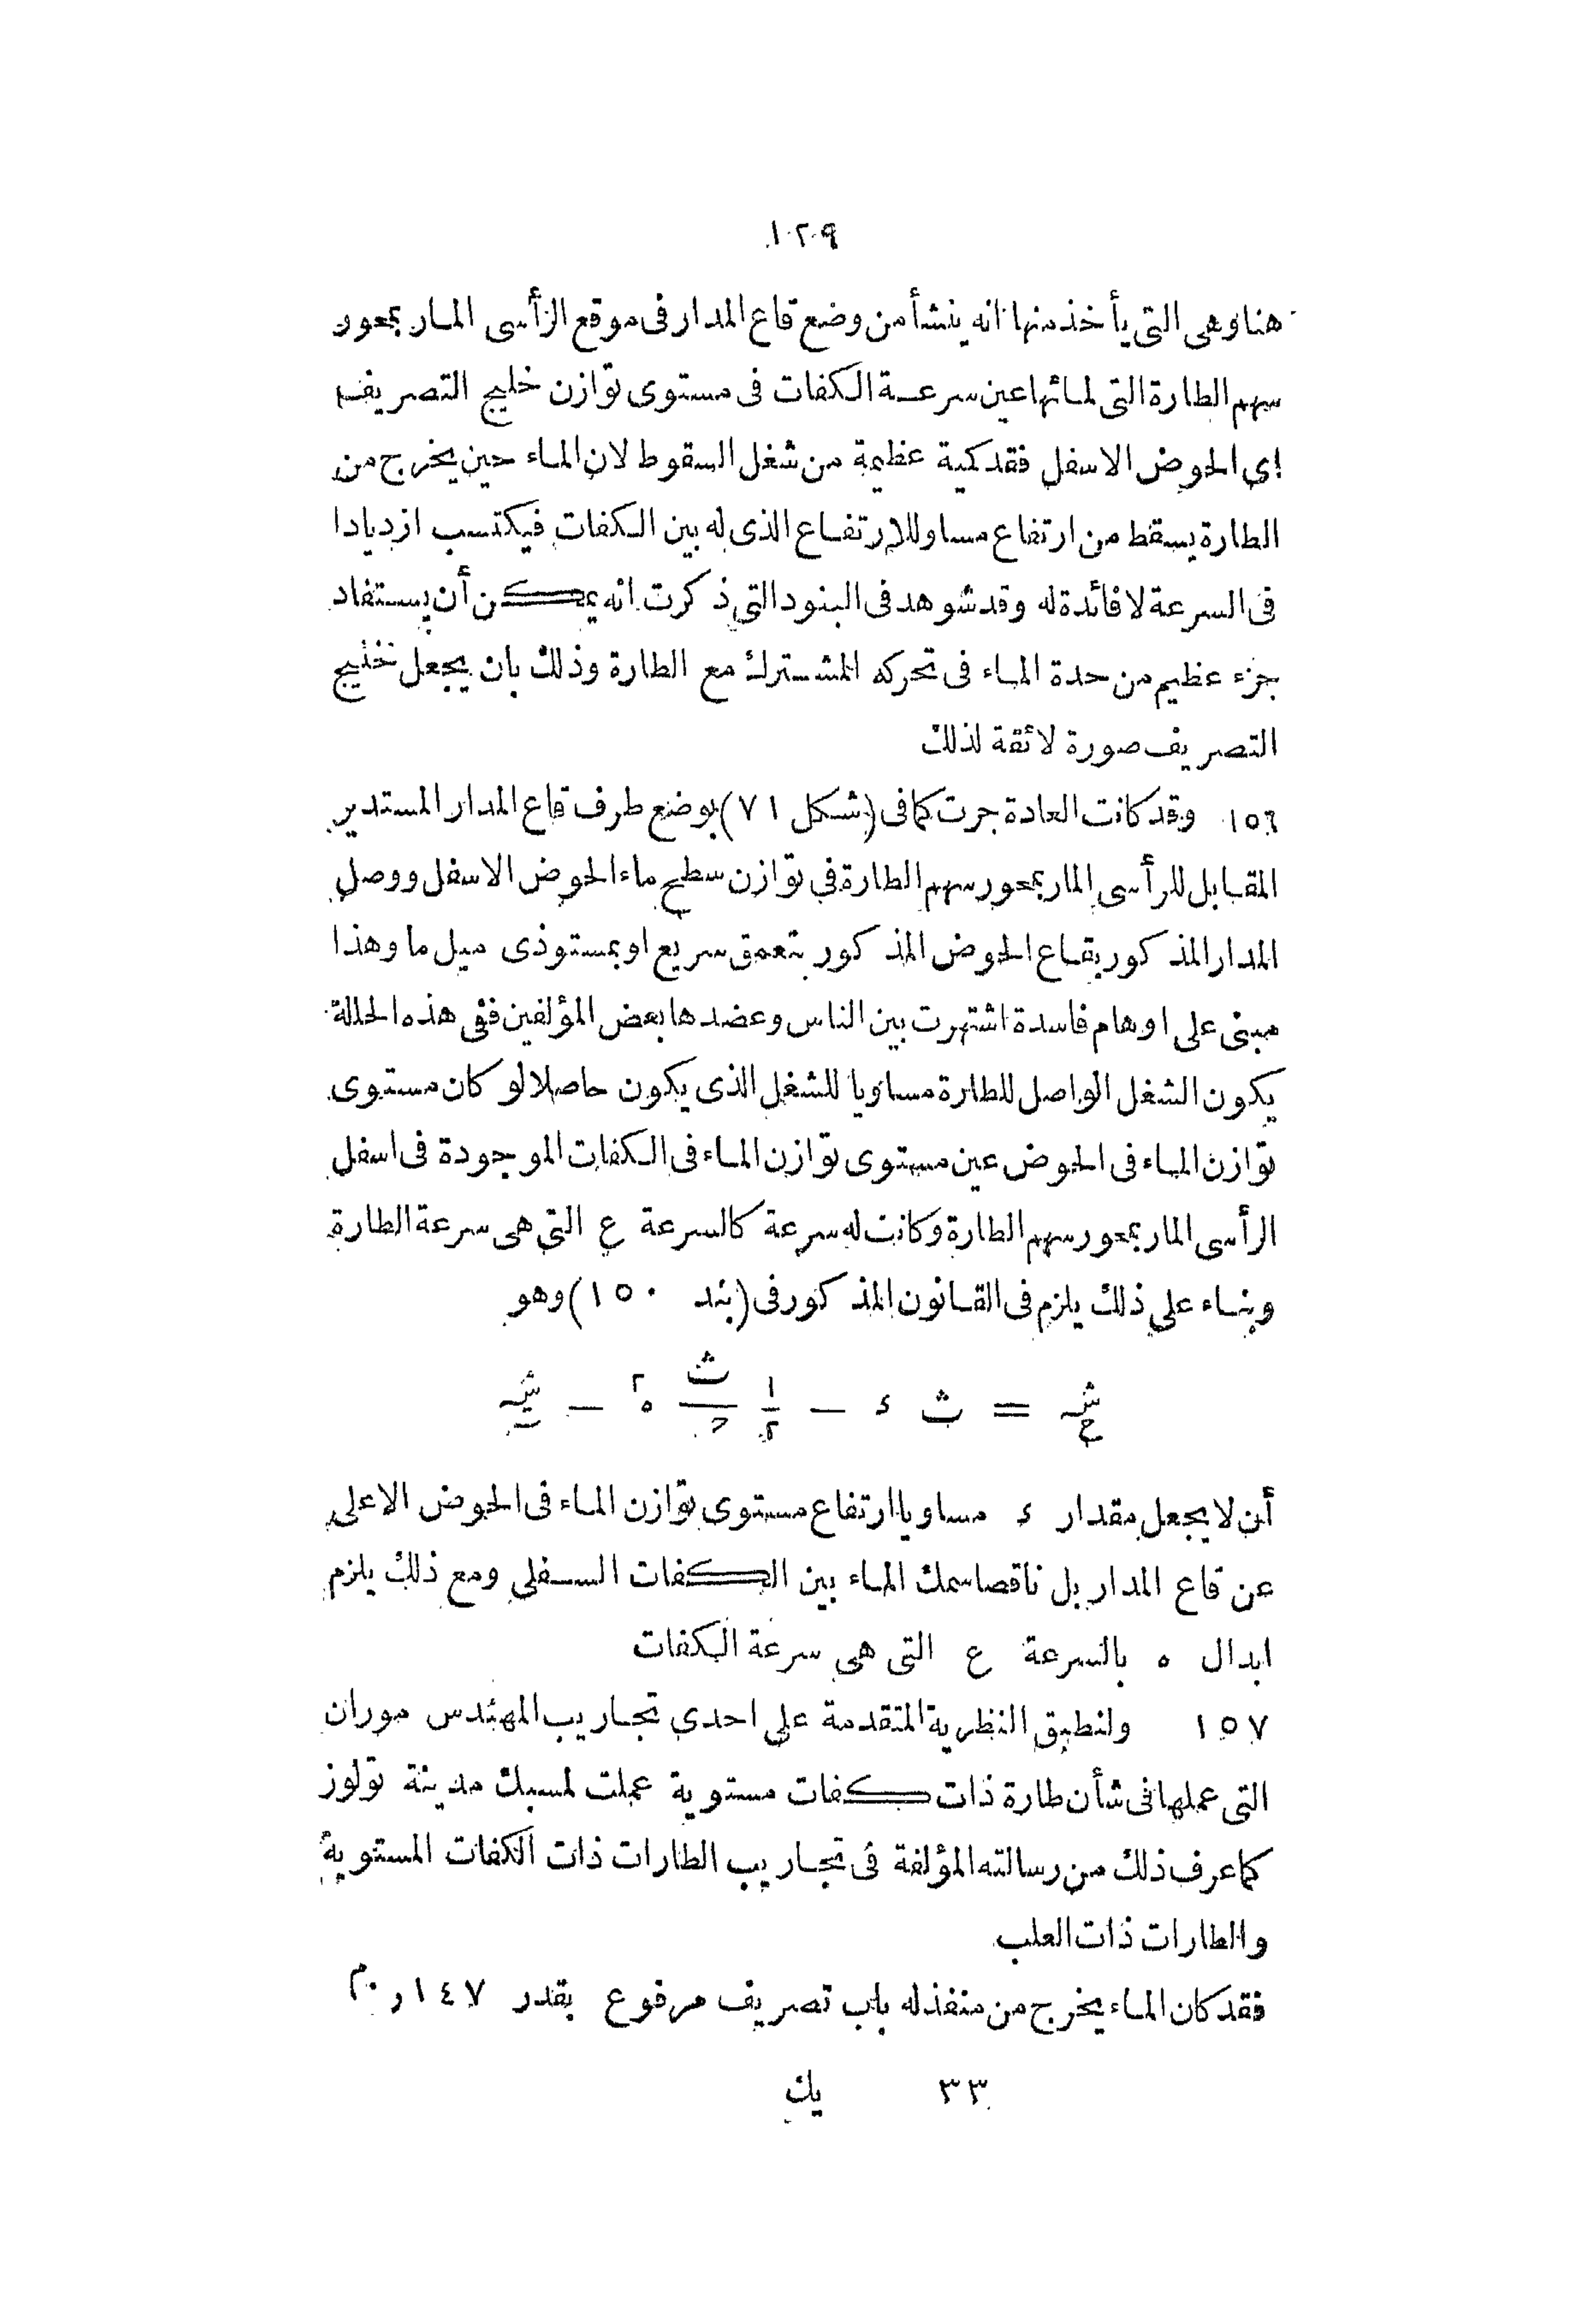 ١٢٩
هنا وهى التى يأخذ منها انه ينشأ من وضع قاع المدار فى موقع الرأسى المار بمحور
سهم الطارة التى لمائها عين سرعة الكفات فى مستوى توازن خليج التصريف
اى الحوض الاسفل فقد كمية عظيمة من شغل السقوط لان الماء حين يخرج من
الطارة يسقط من ارتفاع مساو للارتفاع الذى له بين الكفات فيكتسب ازديادا
فى السرعة لا فائدة له وقد شوهد فى البنود التى ذكرت انه يمكن أن يستفاد
جزء عظيم من حدة الماء فى تحركه المشترك مع الطارة وذلك بان يجعل لخليج
التصريف صورة لائقة لذلك
١٥٦ وقد كانت العادة جرت كما فى (شكل ٧١) بوضع طرف قاع المدار المستدير
المقابل للرأسى المار بمحور سهم الطارة فى توازن سطح ماء الحوض الاسفل ووصل
المدار المذكور بقاع الحوض المذكور بتعمق سريع او بمستو ذى ميل ما وهذا
مبنى على اوهام فاسدة اشتهرت بين الناس وعضدها بعض المؤلفين ففى هذه الحالة
يكون الشغل الواصل للطارة مساويا للشغل الذى يكون حاصلا لو كان مستوى
توازن الماء فى الحوض عين مستوى توازن الماء فى الكفات الموجودة فى اسفل
الرأسى المار بمحور سهم الطارة وكانت له سرعة كالسرعة ع التى هى سرعة الطارة
وبناء على ذلك يلزم فى القانون المذكور فى (بند ١٥٠) وهو
شـ ح = ث ء − ١/٢ ث/ح ه٢ − شـ
أن لا يجعل مقدار ء مساويا ارتفاع مستوى توازن الماء فى الحوض الاعلى
عن قاع المدار بل ناقصا سمك الماء بين الكفات السفلى ومع ذلك يلزم
ابدال ه بالسرعة ع التى هى سرعة الكفات
١٥٧ ولنطبق النظرية المتقدمة على احدى تجاريب المهندس موران
التى عملها فى شأن طارة ذات كفات مستوية عملت لمسبك مدينة تولوز
كما عرف ذلك من رسالته المؤلفة فى تجاريب الطارات ذات الكفات المستوية
والطارات ذات العلب
فقد كان الماء يخرج من منفذ له باب تصريف مرفوع بقدر ١٤٧ر٠م
٣٣ يك